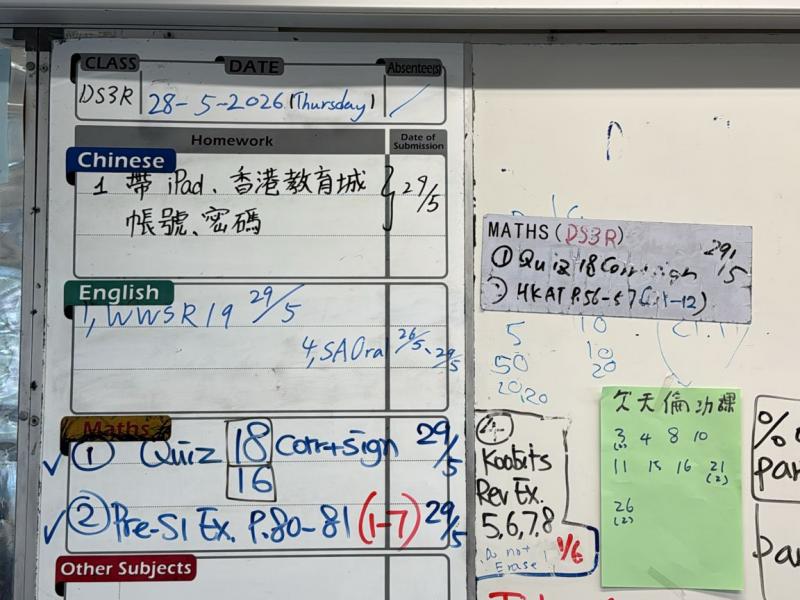 CLASS DATE Absentee(s)
DS3R 28-5-2026 (Thursday) /
Homework Date of Submission
Chinese
1 帶 iPad、香港教育城 29/5
帳號、密碼
English
1, WWSR19 29/5
4, SAOral 26/5、29/5
Maths
✓ ① Quiz 18 Corr+sign 29/5
16
✓ ② Pre-S1 Ex. P.80-81 (1-7) 29/5
Other Subjects
MATHS (DS3R)
① Quiz 18 Corr+sign 29/5
HKAT P.56-57
5 10
50 10
20
20 120
④
Koobits
Rev Ex.
5,6,7,8
Do not
Erase
1/6
欠天倫功課
3 4 8 10
11 15 16 21
(2)
26
(2)
%
par
par